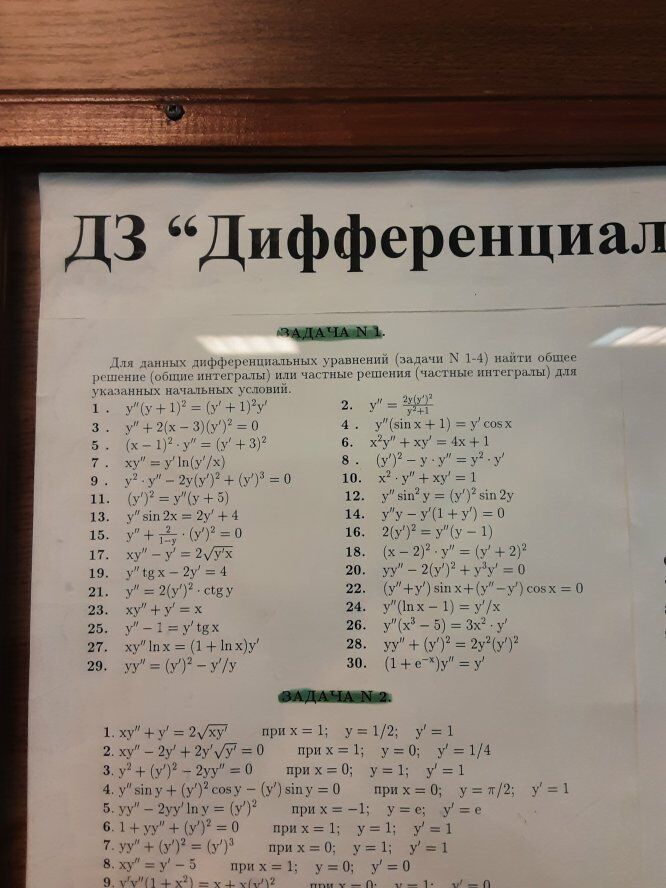 ДЗ “Дифференциал
ЗАДАЧА N 1.
Для данных дифференциальных уравнений (задачи N 1-4) найти общее
решение (общие интегралы) или частные решения (частные интегралы) для
указанных начальных условий.
1 . y″(y + 1)² = (y′ + 1)²y′
2. y″ = 2y(y′)²/(y²+1)
3 . y″ + 2(x − 3)(y′)² = 0
4 . y″(sin x + 1) = y′ cos x
5 . (x − 1)² · y″ = (y′ + 3)²
6. x²y″ + xy′ = 4x + 1
7 . xy″ = y′ ln(y′/x)
8 . (y′)² − y · y″ = y² · y′
9 . y² · y″ − 2y(y′)² + (y′)³ = 0
10. x² · y″ + xy′ = 1
11. (y′)² = y″(y + 5)
12. y″ sin² y = (y′)² sin 2y
13. y″ sin 2x = 2y′ + 4
14. y″y − y′(1 + y′) = 0
15. y″ + 2/(1−y) · (y′)² = 0
16. 2(y′)² = y″(y − 1)
17. xy″ − y′ = 2√(y′x)
18. (x − 2)² · y″ = (y′ + 2)²
19. y″ tg x − 2y′ = 4
20. yy″ − 2(y′)² + y³y′ = 0
21. y″ = 2(y′)² · ctg y
22. (y″+y′) sin x+(y″−y′) cos x = 0
23. xy″ + y′ = x
24. y″(ln x − 1) = y′/x
25. y″ − 1 = y′ tg x
26. y″(x³ − 5) = 3x² · y′
27. xy″ ln x = (1 + ln x)y′
28. yy″ + (y′)² = 2y²(y′)²
29. yy″ = (y′)² − y′/y
30. (1 + e⁻ˣ)y″ = y′
ЗАДАЧА N 2.
1. xy″ + y′ = 2√(xy′) при x = 1; y = 1/2; y′ = 1
2. xy″ − 2y′ + 2y′√(y′) = 0 при x = 1; y = 0; y′ = 1/4
3. y² + (y′)² − 2yy″ = 0 при x = 0; y = 1; y′ = 1
4. y″ sin y + (y′)² cos y − (y′) sin y = 0 при x = 0; y = π/2; y′ = 1
5. yy″ − 2yy′ ln y = (y′)² при x = −1; y = e; y′ = e
6. 1 + yy″ + (y′)² = 0 при x = 1; y = 1; y′ = 1
7. yy″ + (y′)² = (y′)³ при x = 0; y = 1; y′ = 1
8. xy″ = y′ − 5 при x = 1; y = 0; y′ = 0
9. y′y″(1 + x²) = x + x(y′)² при x = 0; y = 1; y′ = 0